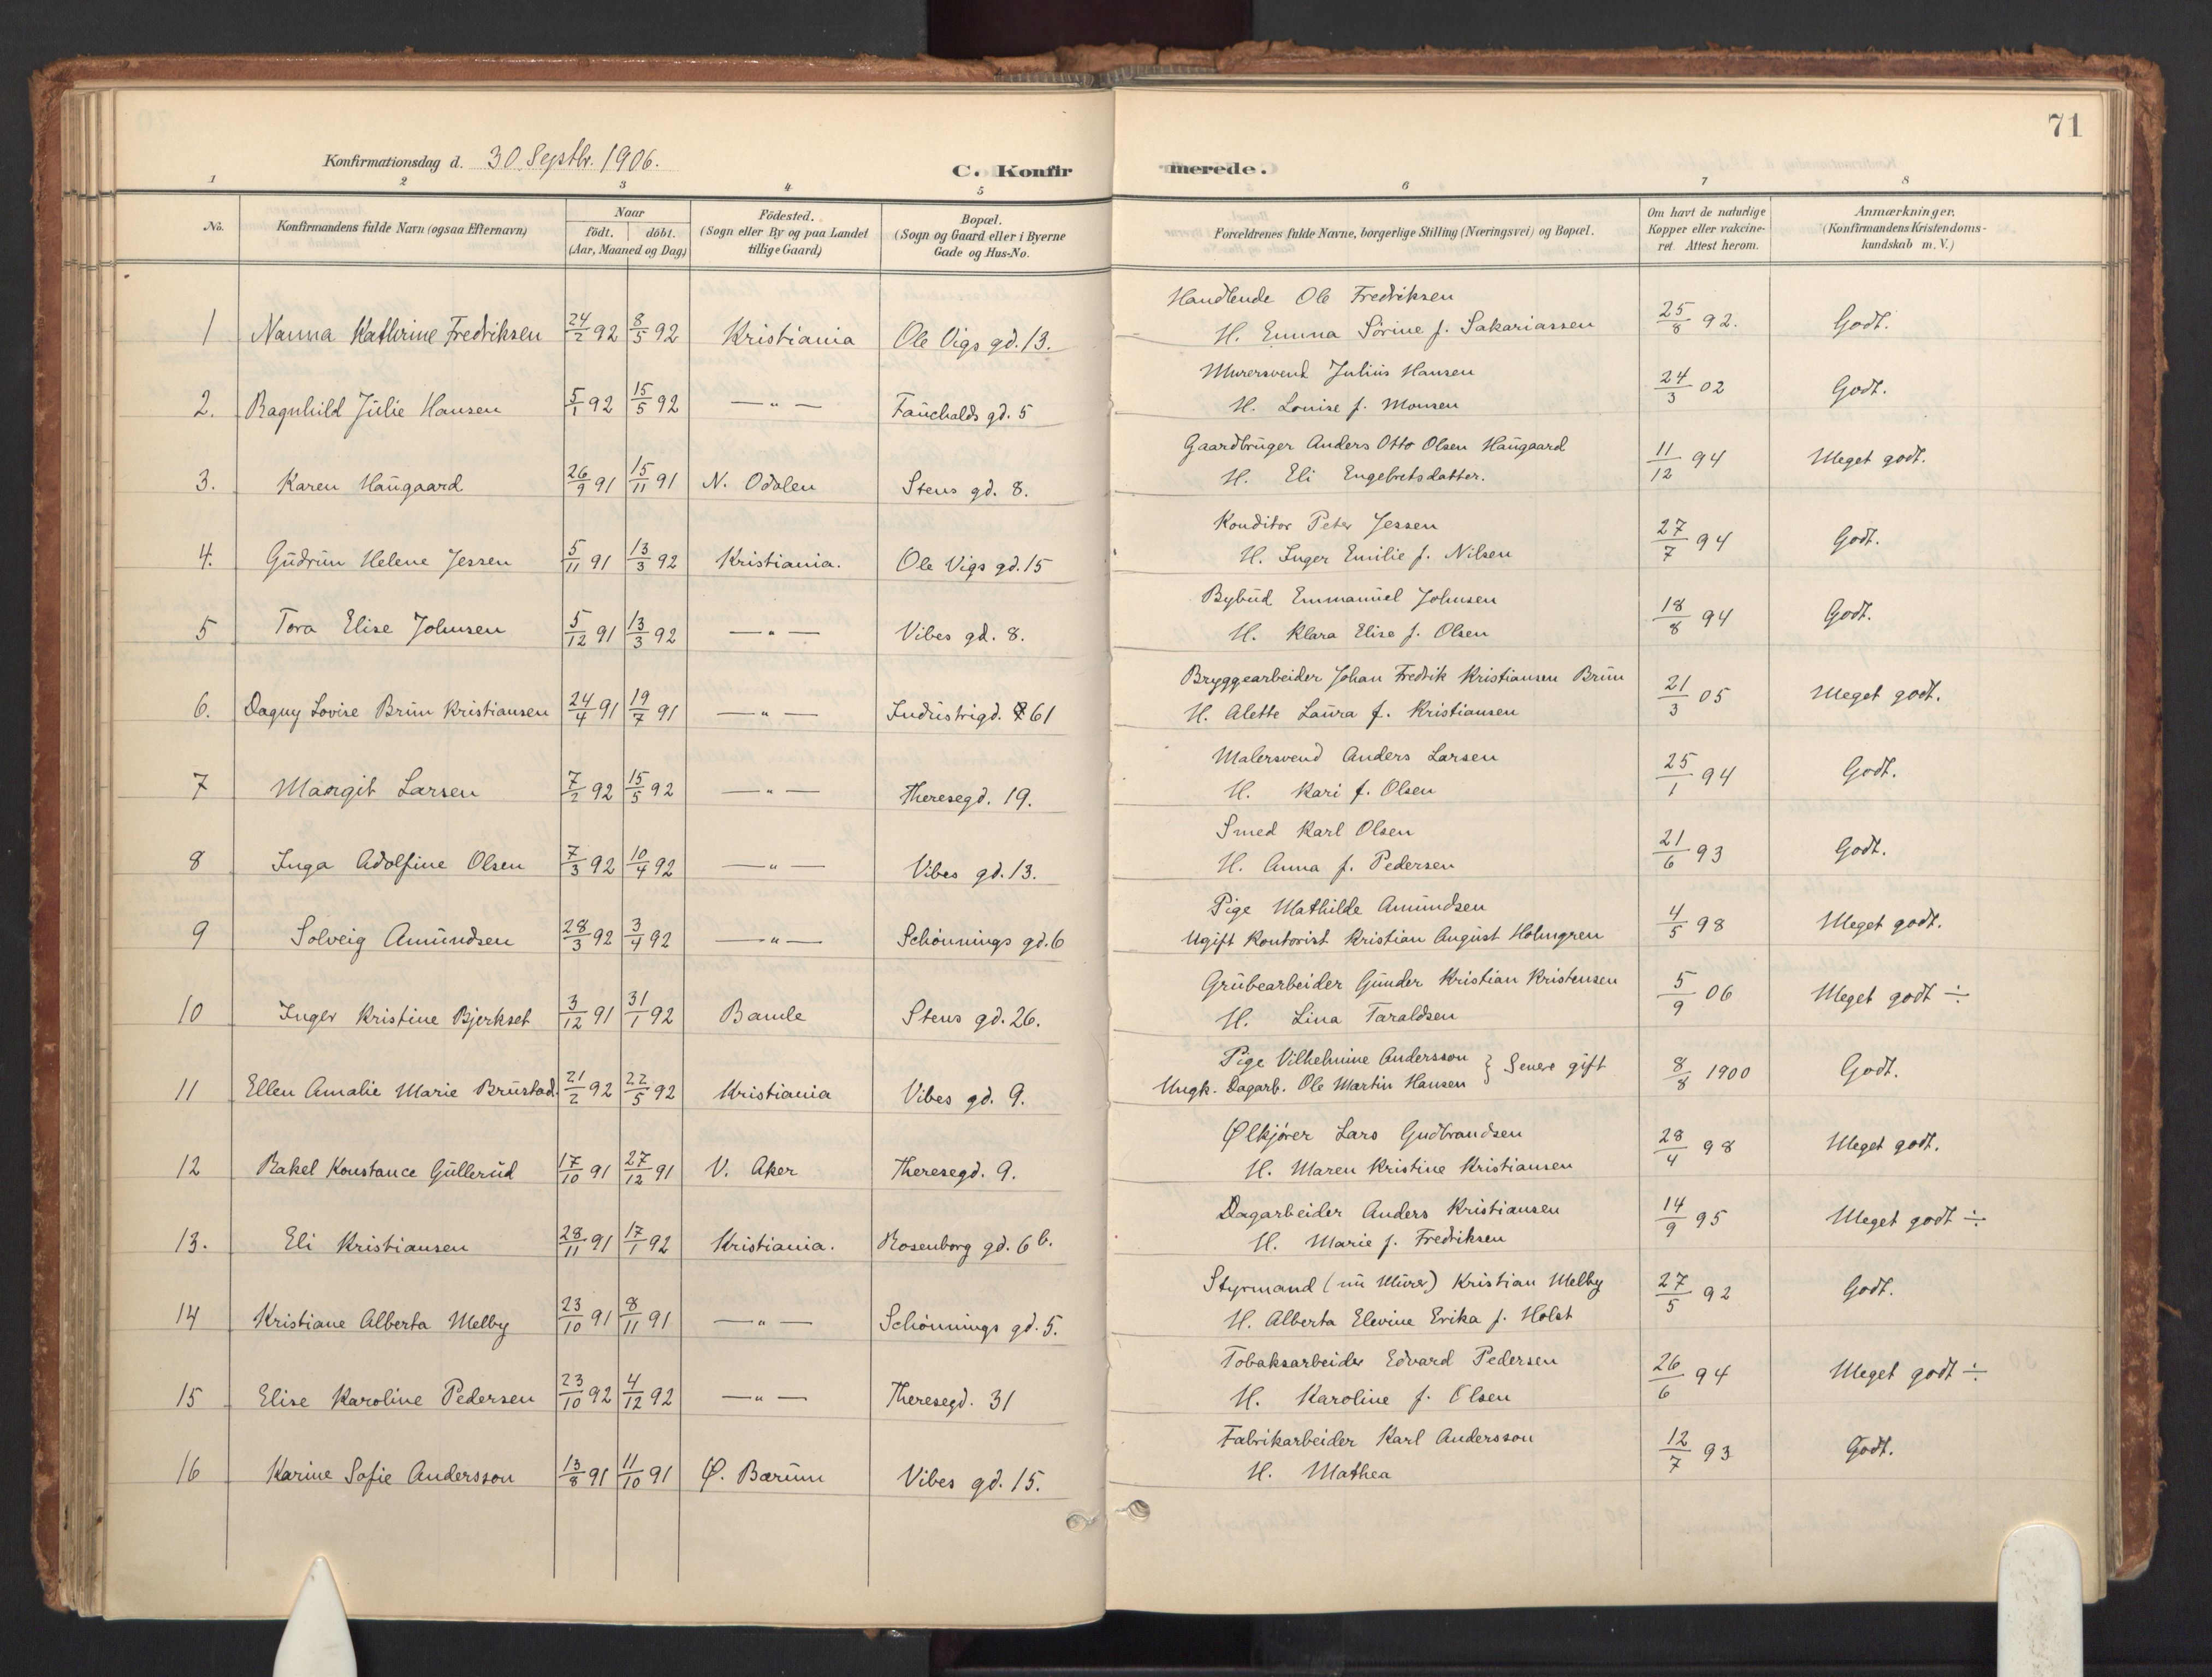 71
Konfirmationsdag d. 30 Septbr. 1906.
C. Konfirmerede.
1 2 3 4 5 6 7 8
No. Konfirmandens fulde Navn (ogsaa Efternavn) Naar født. døbt. (Aar, Maaned og Dag) Födested. (Sogn eller By og paa Landet tillige Gaard) Bopæl. (Sogn og Gaard eller i Byerne Gade og Hus-No. Forældrenes fulde Navne, borgerlige Stilling (Næringsvei) og Bopæl. Om havt de naturlige Kopper eller vakcineret. Attest herom. Anmærkninger. (Konfirmandens Kristendomskundskab m. V.)
1 Nanna Kathrine Fredriksen 24/2 92 8/5 92 Kristiania Ole Vigs gd. 13. Handlende Ole Fredriksen 25/8 92. Godt.
H. Emma Sörine f. Sakariassen
2. Ragnhild Julie Hansen 5/1 92 15/5 92 — " — Fauchalds gd. 5 Murersvend Julius Hansen 24/3 02 Godt.
H. Louise f. Monsen
3. Karen Haugaard 26/9 91 15/11 91 N. Odalen Stens gd. 8. Gaardbruger Anders Otto Olsen Haugaard 11/12 94 Meget godt.
H. Eli Engebretsdatter.
4. Gudrun Helene Jessen 5/11 91 13/3 92 Kristiania. Ole Vigs gd. 15 Konditor Peter Jessen 27/7 94 Godt.
H. Inger Emilie f. Nilsen
5 Tora Elise Johnsen 5/12 91 13/3 92 — " — Vibes gd. 8. Bybud Emmanuel Johnsen 18/8 94 Godt.
H. Klara Elise f. Olsen
6. Dagny Lovise Brun Kristiansen 24/4 91 19/7 91 — " — Industrigd. 61 Bryggearbeider Johan Fredrik Kristiansen Brun 21/3 05 Meget godt.
H. Alette Laura f. Kristiansen
7 Margit Larsen 7/2 92 15/5 92 — " — Theresegd. 19. Malersvend Anders Larsen 25/1 94 Godt.
H. Kari f. Olsen
8 Inga Adolfine Olsen 7/3 92 10/4 92 — " — Vibes gd. 13. Smed Karl Olsen 21/6 93 Godt.
H. Anna f. Pedersen
9 Solveig Amundsen 28/3 92 3/4 92 — " — Schönnings gd. 6 Pige Mathilde Amundsen 4/5 98 Meget godt.
Ugift Kontorist Kristian August Holmgren
10 Inger Kristine Bjerkset 3/12 91 31/1 92 Bamle Stens gd. 26. Grubearbeider Gunder Kristian Kristensen 5/9 06 Meget godt ÷
H. Lina Taraldsen
11 Ellen Amalie Marie Brustad. 21/2 92 22/5 92 Kristiania Vibes gd. 9. Pige Vilhelmine Andersson } Senere gift 8/8 1900 Godt.
Ungk. Dagarb. Ole Martin Hansen
12 Rakel Konstance Gullerud 17/10 91 27/12 91 V. Aker Theresegd. 9. Ølkjörer Lars Gudbrandsen 28/4 98 Meget godt.
H. Maren Kristine Kristiansen
13. Eli Kristiansen 28/11 91 17/1 92 Kristiania. Rosenborg gd. 6 b. Dagarbeider Anders Kristiansen 14/9 95 Meget godt ÷
H. Marie f. Fredriksen
14 Kristiane Alberta Melby 23/10 91 8/11 91 — " — Schönnings gd. 5. Styrmand (nu Murer) Kristian Melby 27/5 92 Godt.
H. Alberta Elevine Erika f. Holst
15 Elise Karoline Pedersen 23/10 92 4/12 92 — " — Theresegd. 31 Tobaksarbeider Edvard Pedersen 26/6 94 Meget godt ÷
H. Karoline f. Olsen
16 Karine Sofie Andersson 13/8 91 11/10 91 Ø. Bærum Vibes gd. 15. Fabrikarbeider Karl Andersson 12/7 93 Godt.
H. Mathea